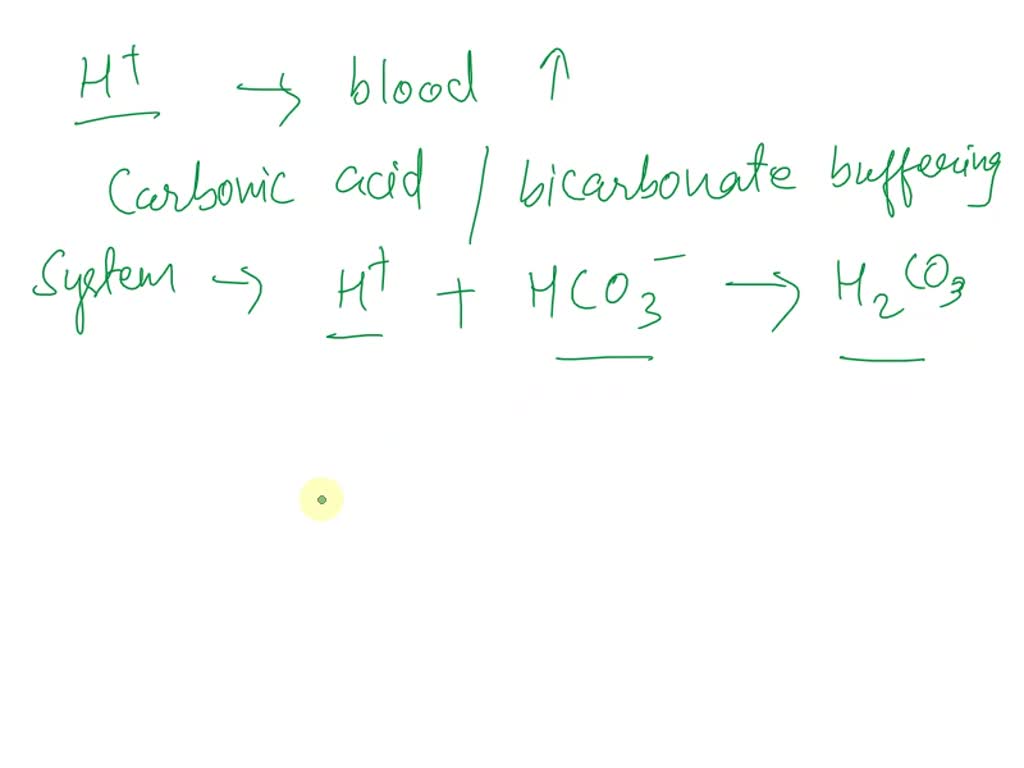 H⁺ → blood ↑
Carbonic acid / bicarbonate buffering
System → H⁺ + HCO₃⁻ → H₂CO₃